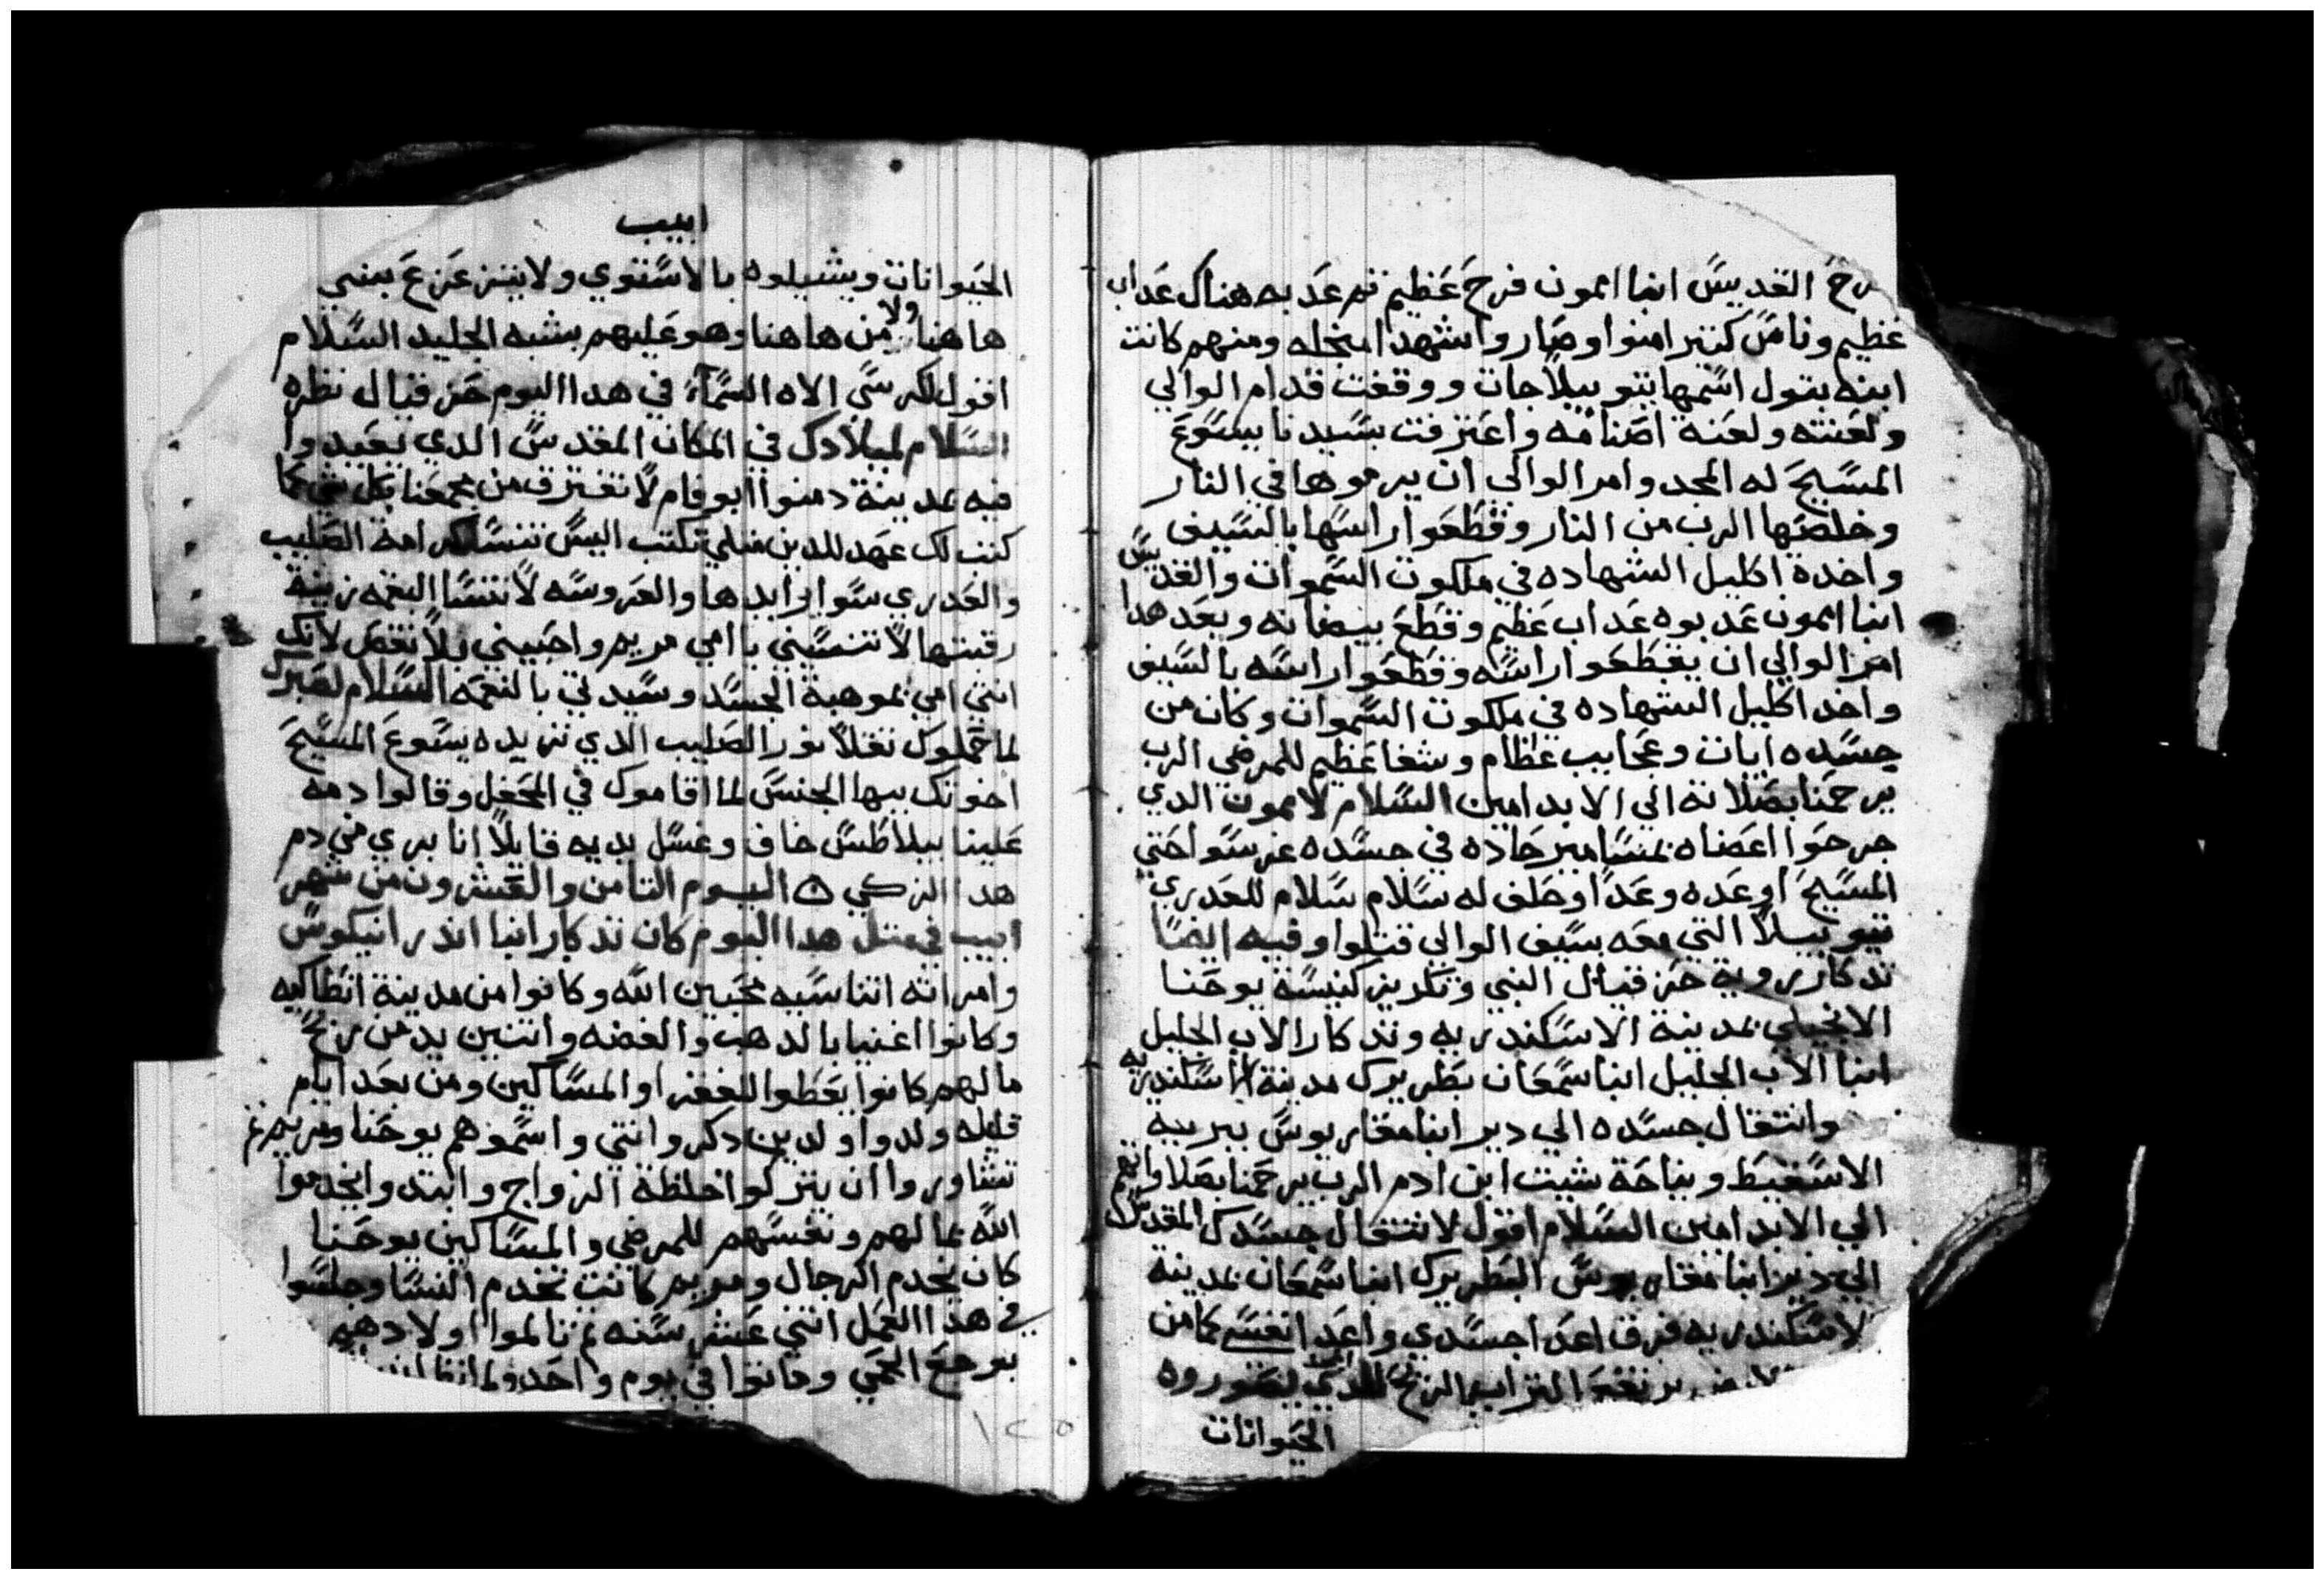 القديس انبا امون فرح عظيم تم عدبه هناك عداب
عظيم وناس كتير امنوا وصاروا شهدا منجله ومنهم كانت
ابنه بتول اسمها تيوبيلا جات ووقفت قدام الوالي
ولعنته ولعنة اصنامه واعترفت بسيدنا يسوع
المسيح له المجد وامر الوالي ان يرموها في النار
وخلصها الرب من النار وقطعوا راسها بالسيف
واخدة اكليل الشهاده في ملكوت السموات والقديس
انبا امون عدبوه عداب عظيم وقطع بيضانه وبعد هدا
امر الوالي ان يقطعوا راسه وقطعوا راسه بالسيف
واخد اكليل الشهاده في ملكوت السموات وكان من
جسده ايات وعجايب عظام وشفا عظيم للمرضي الرب
يرحمنا بصلاته الي الابد امين السلام لامون الدي
جرحوا اعضاه بمسامير حاده في جسده غرسوا حتي
المسيح اوعده وعدا وحلف له سلام سلام للعدري
تيوبيلا التي معه بسيف الوالي قتلوا وفيه ايضا
تدكار روية حزقيال النبي وتكريز كنيسة يوحنا
الانجيلي بمدينة الاسكندريه وتدكار الاب الجليل
انبا الاب الجليل انبا سمعان بطريرك مدينة الاسكندريه
وانتقال جسده الي دير انبا مقاريوس ببرية
الاسقيط ونياحة شيت ابن ادم الرب يرحمنا بصلاواتهم
الي الابد امين السلام اقول لانتقال جسدك المقدس
الي دير انبا مقاريوس البطريرك انبا سمعان بمدينة
لاسكندريه فرق اعدا جسدي واعدا نفسي كما من
التراب الريح الدي يصوروه
الحيوانات
ابيب
الحيوانات ويشيلوه بالاستوي ولا يتزعزع يعني
هاهنا ولا من هاهنا وهو عليهم يشبه الجليد السلام
اقول لكرسي الاه السماء في هدا اليوم حزقيال نظره
السلام لميلادك في المكان المقدس الدي يعيدوا
فيه بمدينة دمنوا ابوفام لا تفترق من مجمعنا بكل شي كما
كنت لك عهد للدين قبلي تكتب اليس تنسا كرامة الصليب
والعدري سوا ابدها والعروسه لا تنسا البغمه زينة
رقبتها لا تنسيني يا امي مريم واحبيني ولا نقص لانك
انتي امي بموهبة الجسد وسيدتي بالنعمه السلام لصبرك
لما حملوك تقلا نور الصليب الدي تريده يسوع المسيح
اخوتك بيها الجنس لما اقاموك في المحفل وقالوا دمه
علينا بيلاطس خاف وغسل يديه قايلا انا بري من دم
هدا الزكي ۞ اليوم التامن والعشرون من شهر
ابيب في متل هدا اليوم كان تدكار انبا اندرانيكوس
وامراته اتناسيه محبين الله وكانوا من مدينة انطاكيه
وكانوا اغنيا بالدهب والفضه واتنين يد من ربح
مالهم كانوا يعطوا للفقرا والمساكين ومن بعد ايام
قليله ولدوا ولدين دكر وانتي واسموهم يوحنا ومريم تم
تشاوروا ان يتركوا خلطة الزواج وابتدوا يخدموا
الله بمالهم ونفسهم للمرضي والمساكين يوحنا
كان يخدم الرجال ومريم كانت تخدم النسا وجلسوا
في هدا العمل اتني عشر سنه تم تالموا اولادهم
بوجع الحمي وماتوا في يوم واحد ولما
١٢٥